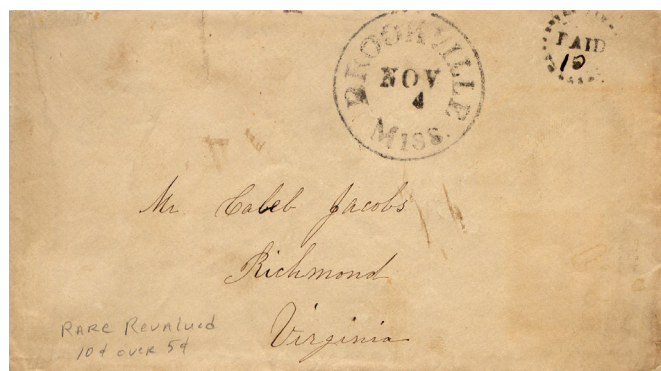 BROOKVILLE
NOV
4
Miss.
PAID
10
Mr Caleb Jacobs
Richmond
Virginia
RARE REVALUED
10¢ over 5¢